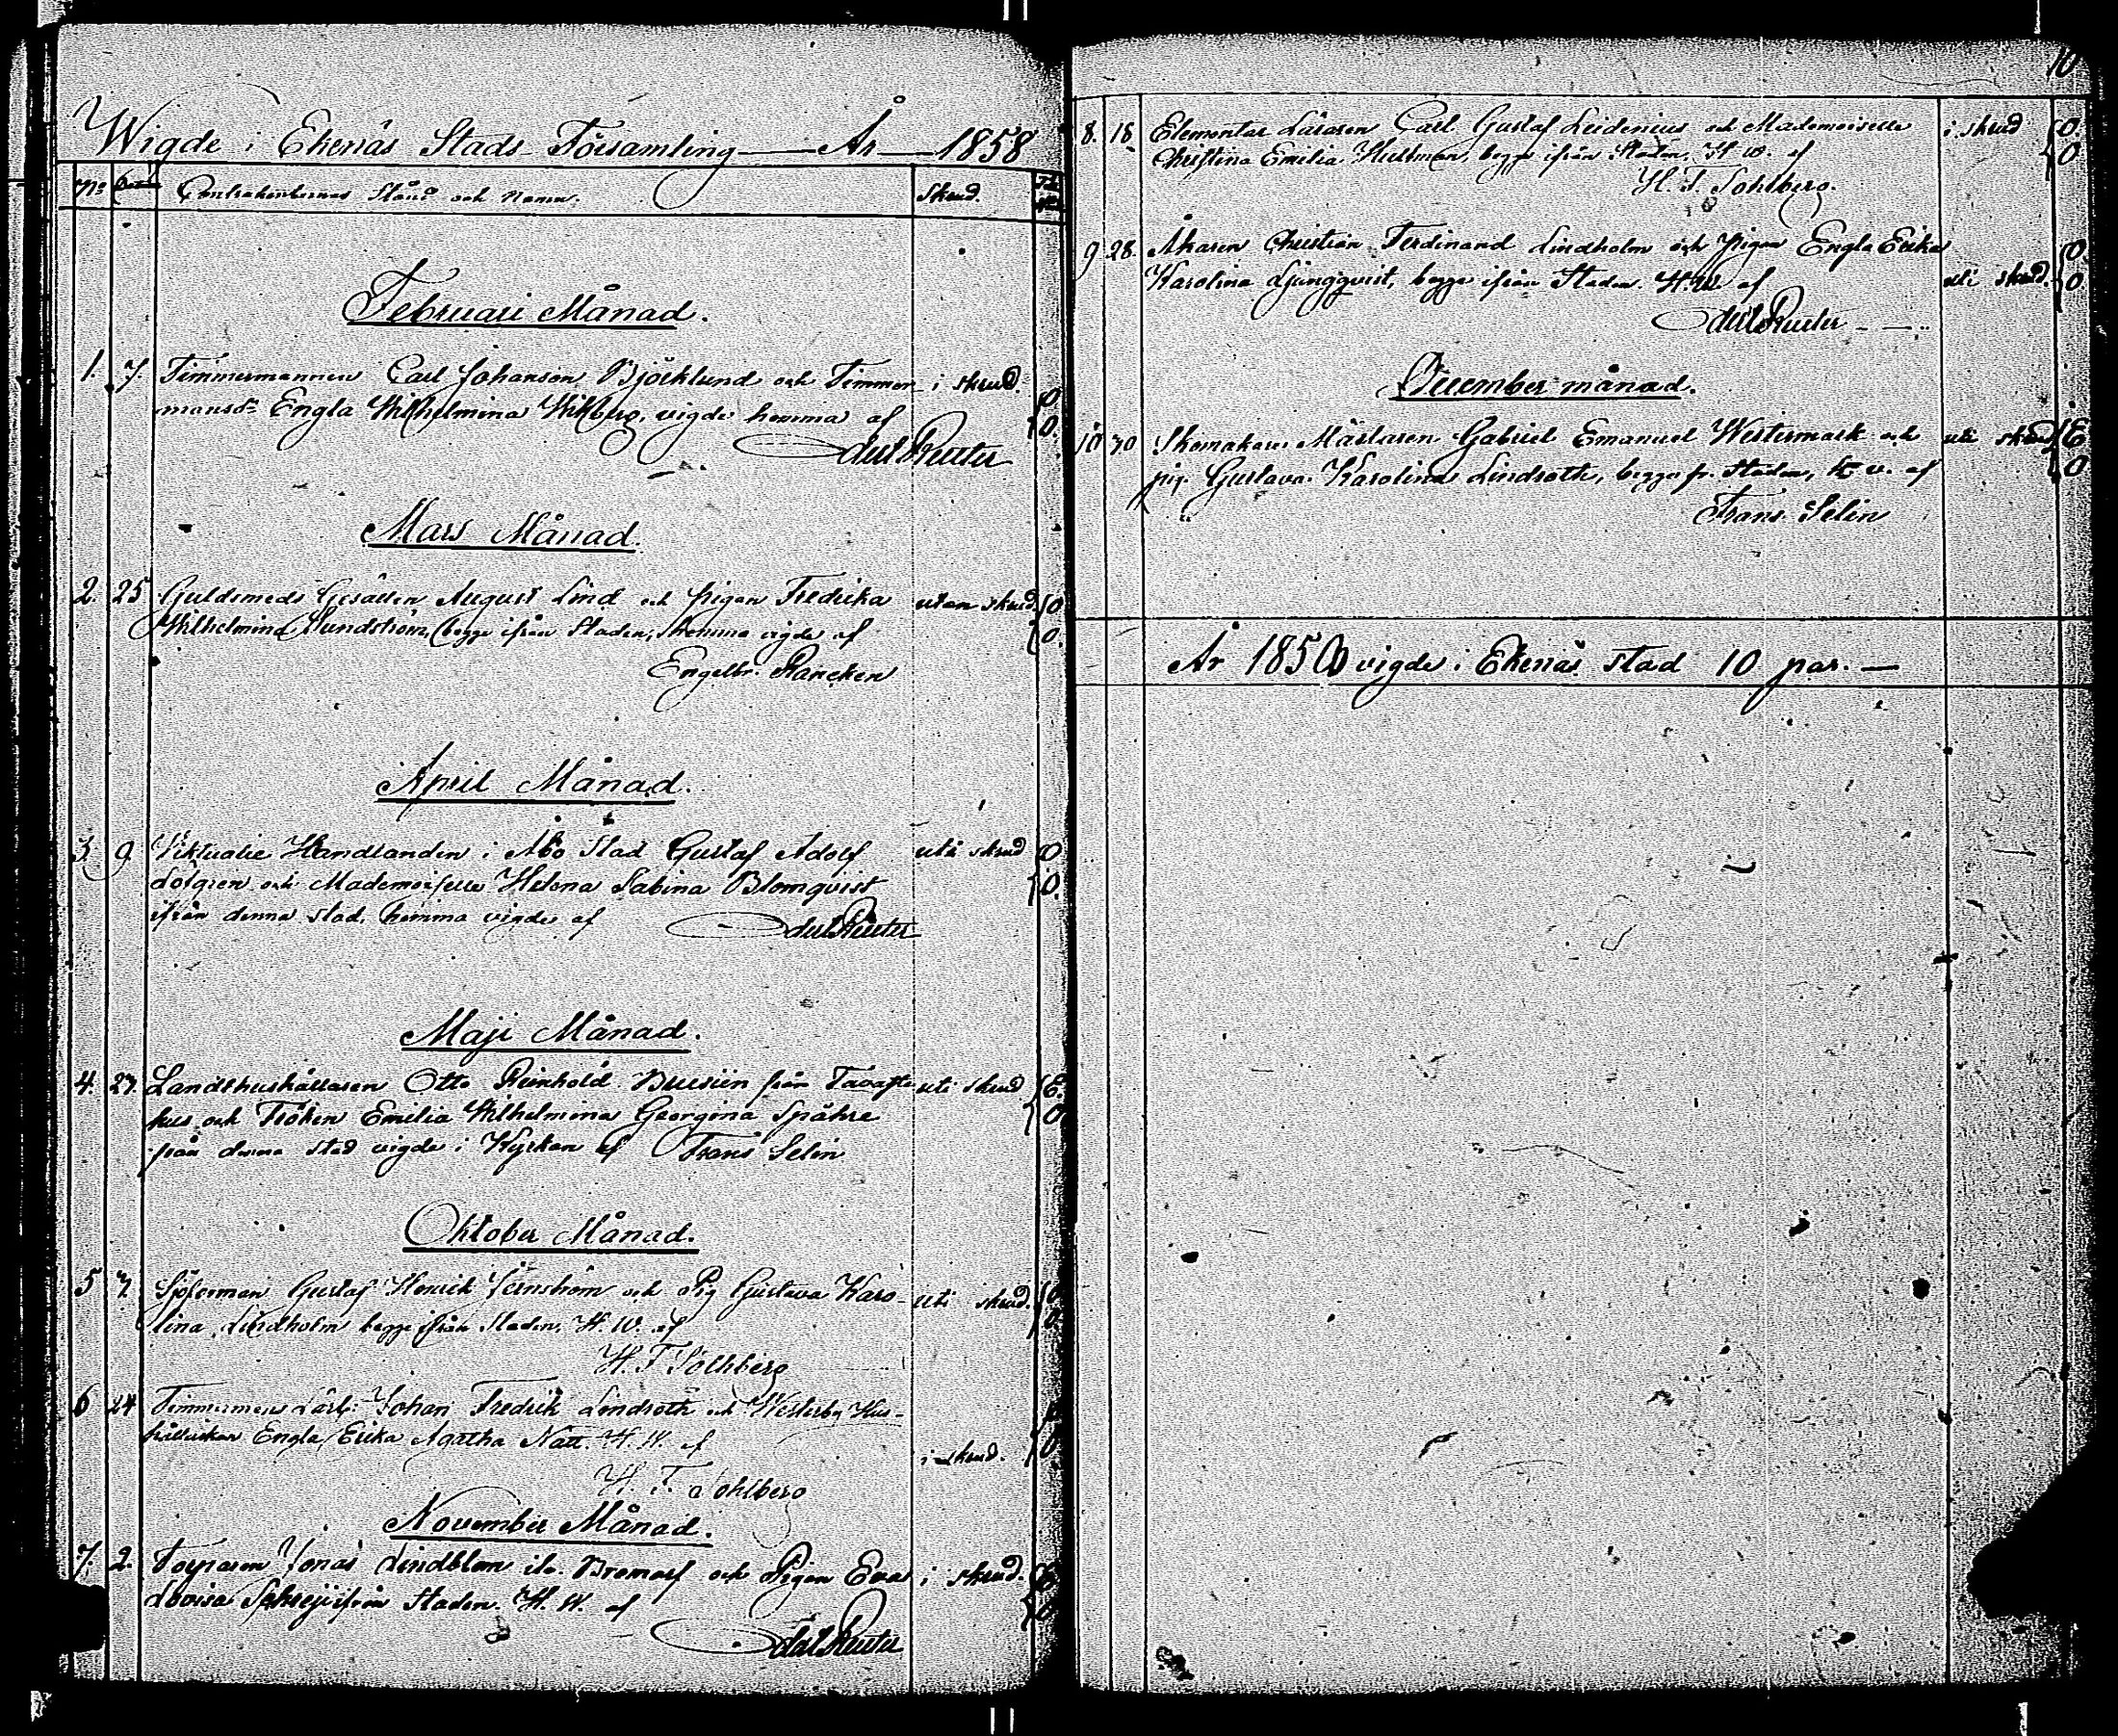 Wigde i Ekenäs Stads Församling År 1858
No Contrahenternas Stånd och Namn. Skrud.
Februari Månad.
1. 7. Timmermannen Carl Johanson Björklund och Timmer- i skrud.
mansdr Engla Wilhelmina Wikberg, vigde hemma af
Reuter
Mars Månad.
2. 25 Guldsmeds Gesällen August Lind och pigan Fredrika utan skrud. 0
Wilhelmina Sundström, begge ifrån Staden, hemma vigde af 0.
Engelbr. Rancken
April Månad.
3. 9 Viktualie Handlanden i Åbo Stad Gustaf Adolf uti skrud 0
Löfgren och Mademoiselle Helena Sabina Blomqvist 0.
ifrån denna stad, hemma vigde af Reuter
Maji Månad.
4. 27. Landthushållaren Otto Reinhold från Tavaste- uti skrud E.
hus och Fröken Emilia Wilhelmina Georgina Spåhre 0
från denna stad vigde i Kyrkan af Frans Selin
Oktober Månad.
5 7. Sjöferman Gustaf Henrik Jernström och Pig Gustava Karo- uti skrud. 0
lina Lindholm begge ifrån Staden. H. W. af 0.
H. F. Sohlberg
6 24 Timmermans Lärl: Johan Fredrik Lindroth och Westerby Hus-
hållerskan Engla Erika Agatha Natt. H. W. af i skrud. 0
H. F. Sohlberg
November Månad.
7. 2. Torparen Jonas Lindblom Bromarf och Pigan Eva i skrud.
Lovisa ifrån Staden. H. W. af
Reuter
10
8. 18 Elementar Läraren Carl Gustaf Leidenius och Mademoiselle i skrud 0.
Christina Emilia Hultman, begge ifrån Staden, H. W. af 0
H. F. Sohlberg.
9 28. Åkaren Christian Ferdinand Lindholm och pigan Engla Erika 0
Karolina Ljungqvist, begge ifrån Staden. H. W. af uti skrud. 0
Reuter
December månad.
10 30 Skomakare Mästaren Gabriel Emanuel Westermark och uti skrud E
pig. Gustava Karolina Lindroth, begge fr. Staden, H v. af 0
Frans Selin
År 1858 vigde i Ekenäs stad 10 par.